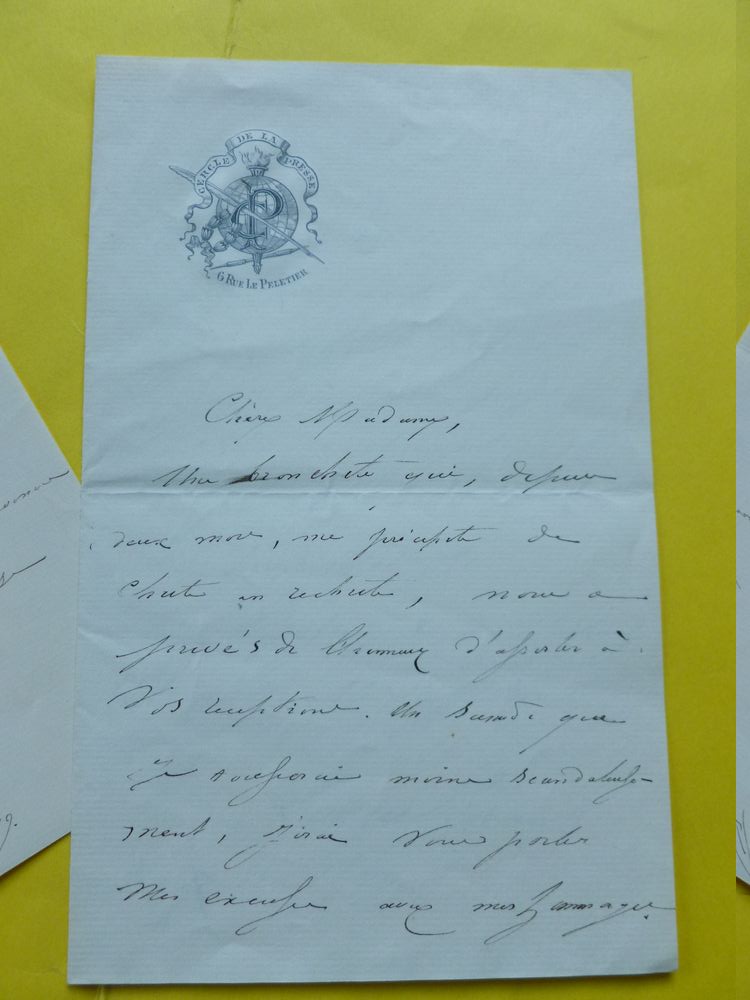 CERCLE DE LA PRESSE
CP
6 RUE LE PELETIER
Chère Madame,
Une bronchite qui, depuis
deux mois, me précipite de
chute en rechute, nous a
privés de l'honneur d'assister à
vos réceptions. Un samedi que
je tousserai moins scandaleuse-
ment, j'irai vous porter
mes excuses avec mes hommages.